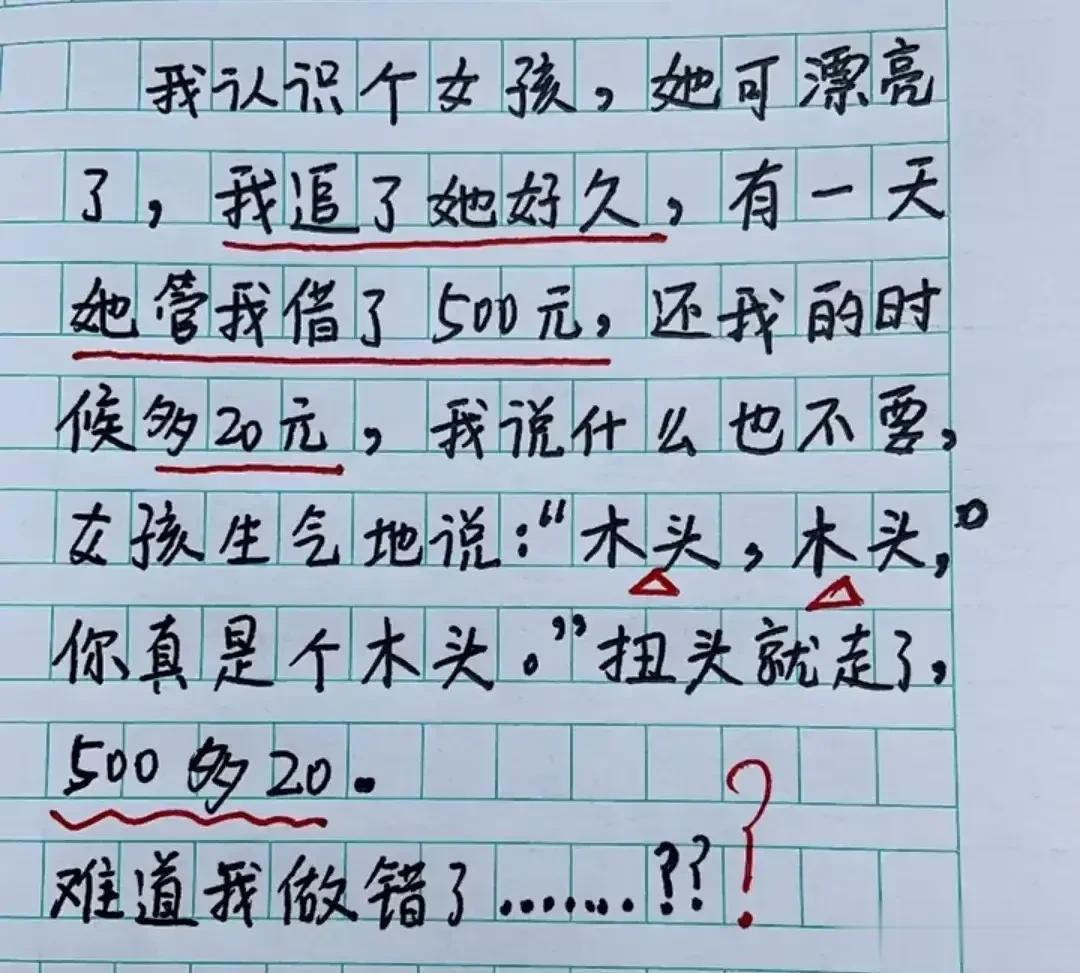 我认识个女孩，她可漂亮
了，我追了她好久，有一天
她管我借了500元，还我的时
候多20元，我说什么也不要，
女孩生气地说：“木头，木头，
你真是个木头。”扭头就走了，
500多20.
难道我做错了.......???